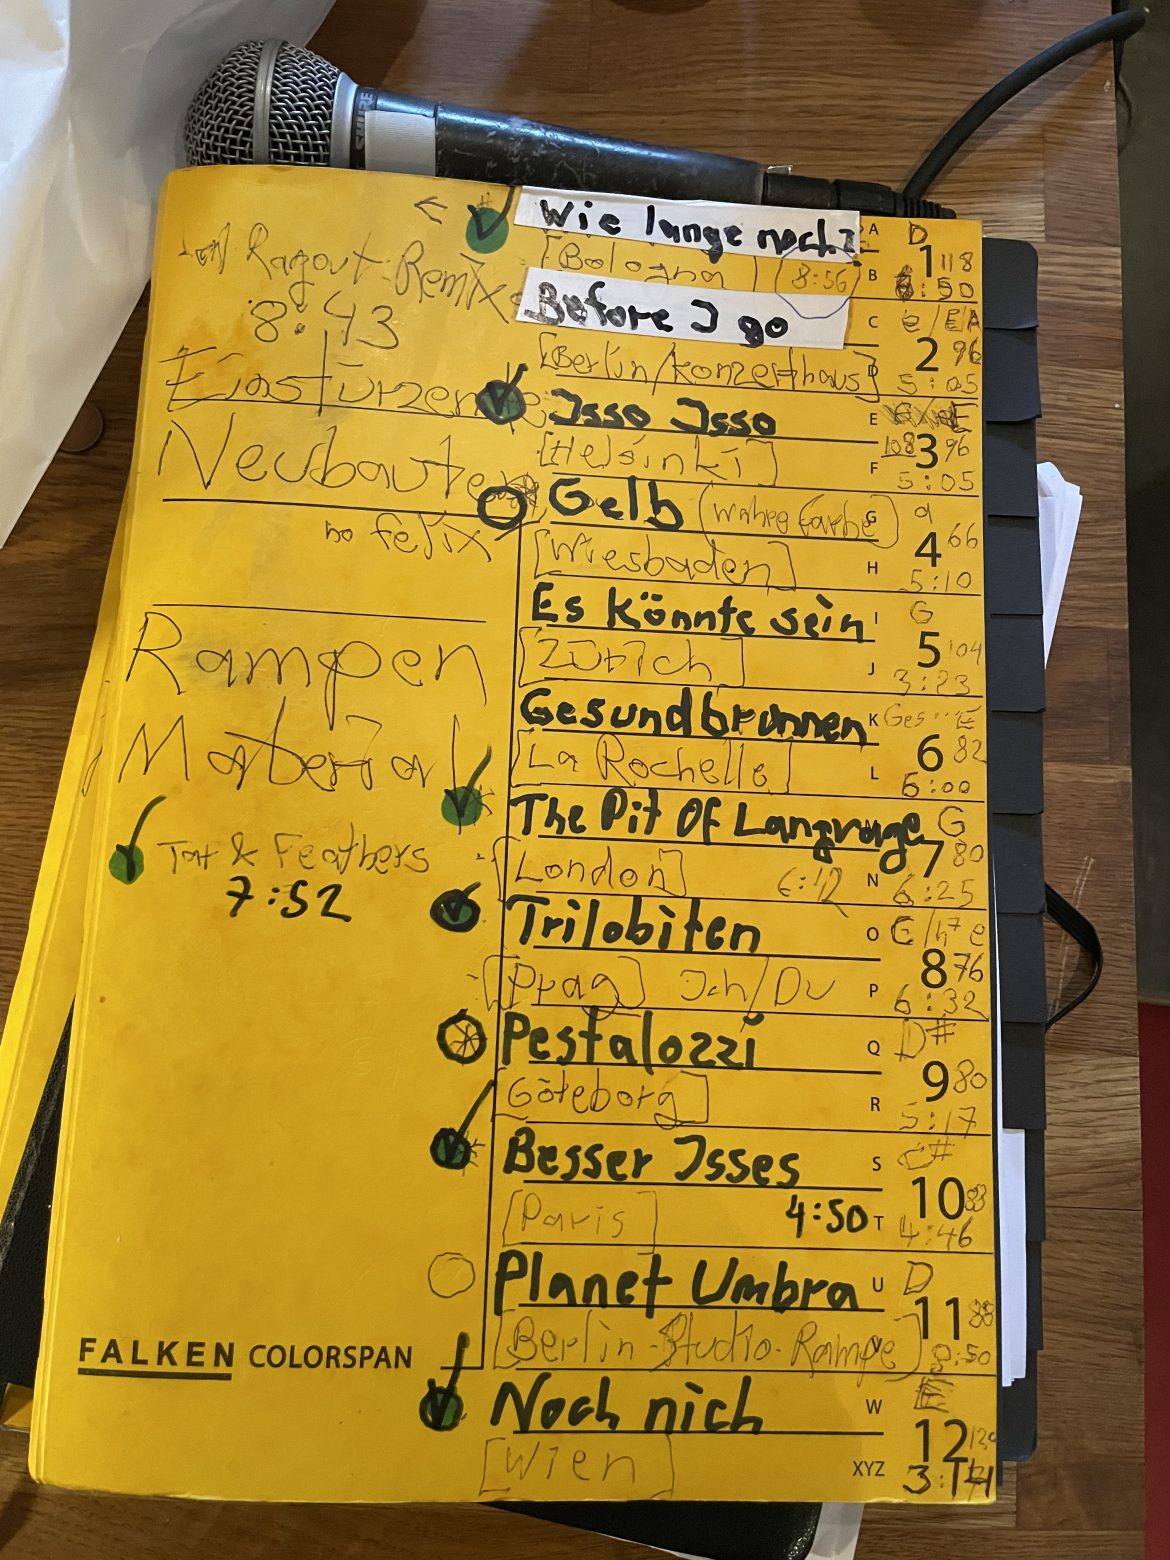 SHURE
← Wie lange noch?
A D
Ragout-Remix
[Bologna] (8:56)
B 1 118
8:43
Before I go
C e/EA
[Berlin/Konzerthaus]
D 2 96
5:05
Einstürzende
Isso Isso
E
Neubauten
[Helsinki]
F 108 3 96
5:05
Gelb (wahre Farbe)
G a
no felix
[Wiesbaden]
H 4 66
5:10
Es könnte sein
I G
Rampen
[Zürich]
J 5 104
3:23
Material
Gesundbrunnen
K Ges...E
[La Rochelle]
L 6 82
6:00
The Pit Of Language
G
Tar & Feathers
[London] 6:42
N 7 80
6:25
7:52
Trilobiten
O C/h7 e
[Prag] Ich/Du
P 8 76
6:32
Pestalozzi
Q D#
[Göteborg]
R 9 80
5:17
Besser Isses
S C#
[Paris] 4:50
T 10 83
4:46
Planet Umbra
U D
[Berlin-Studio-Rampe]
V 11 88
FALKEN COLORSPAN
Noch nich
W E
[Wien]
XYZ 12
3:14